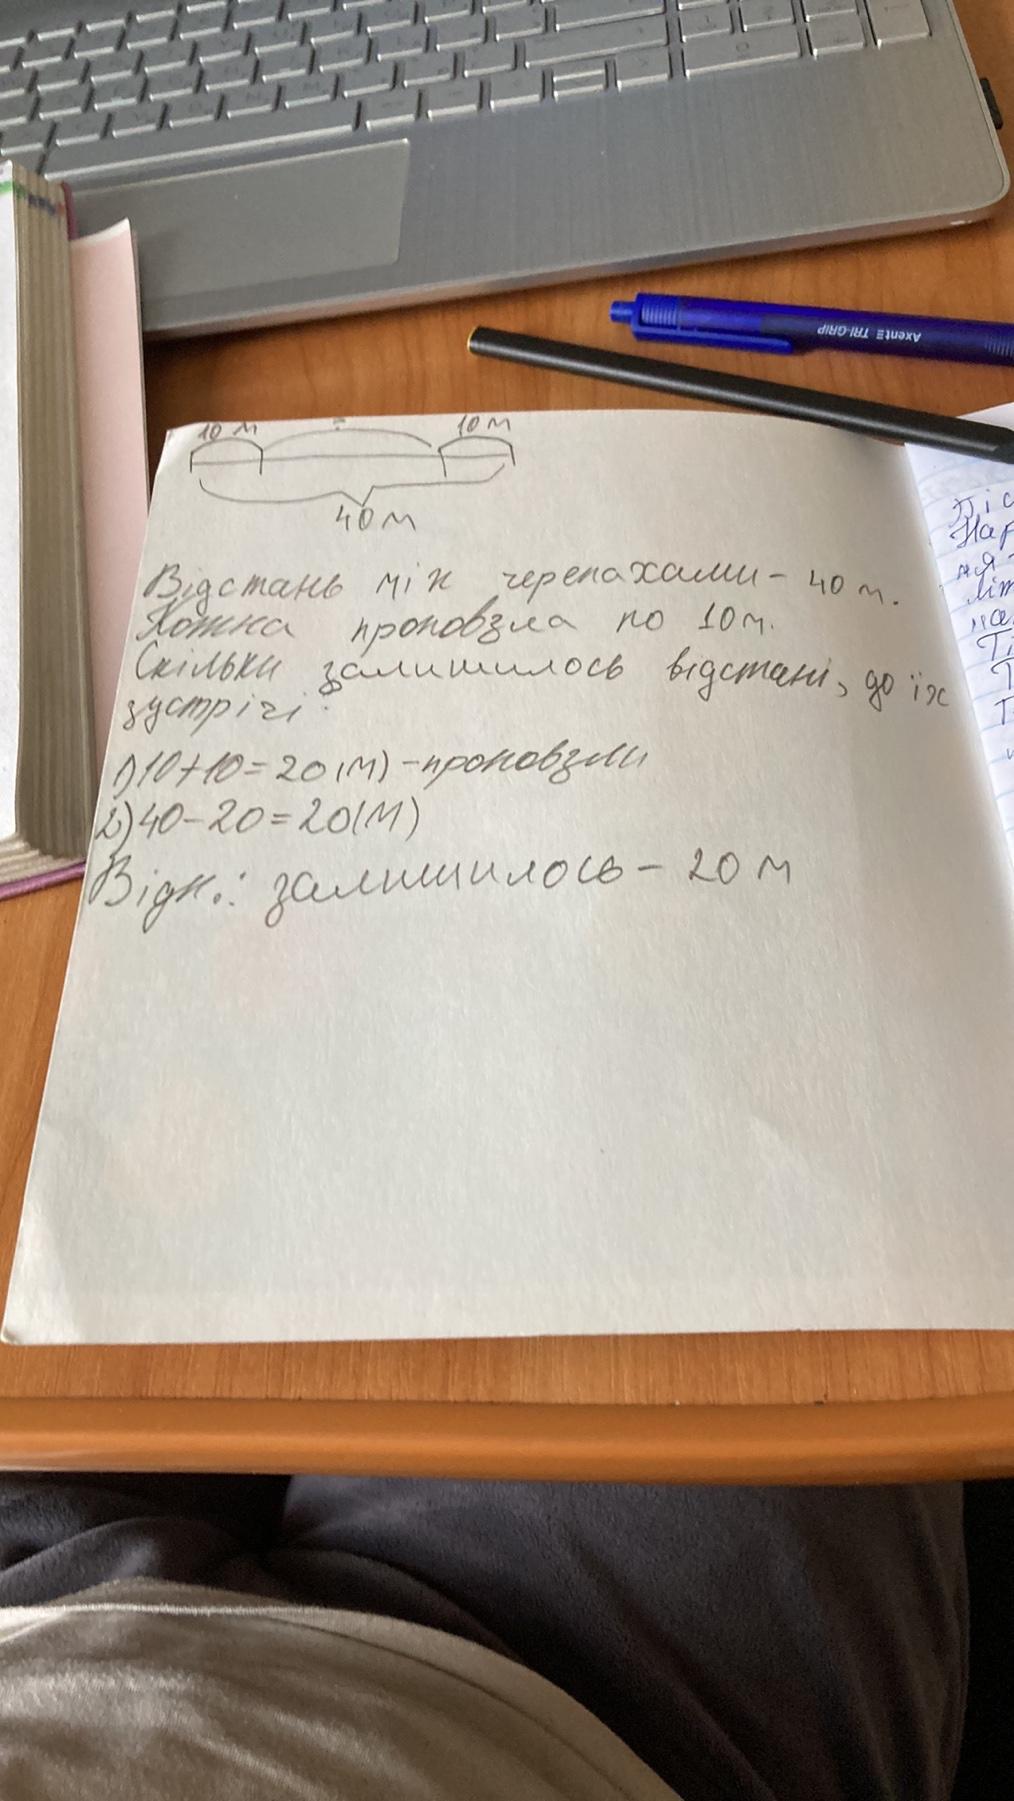 Axent TRI-GRIP
10 м 10 м
40 м
Відстань між черепахами - 40 м.
Кожна проповзла по 10 м.
Скільки залишилось відстані, до їх
зустрічі.
1) 10+10=20(м) - проповзли
2) 40-20=20(м)
Відп.: залишилось - 20 м